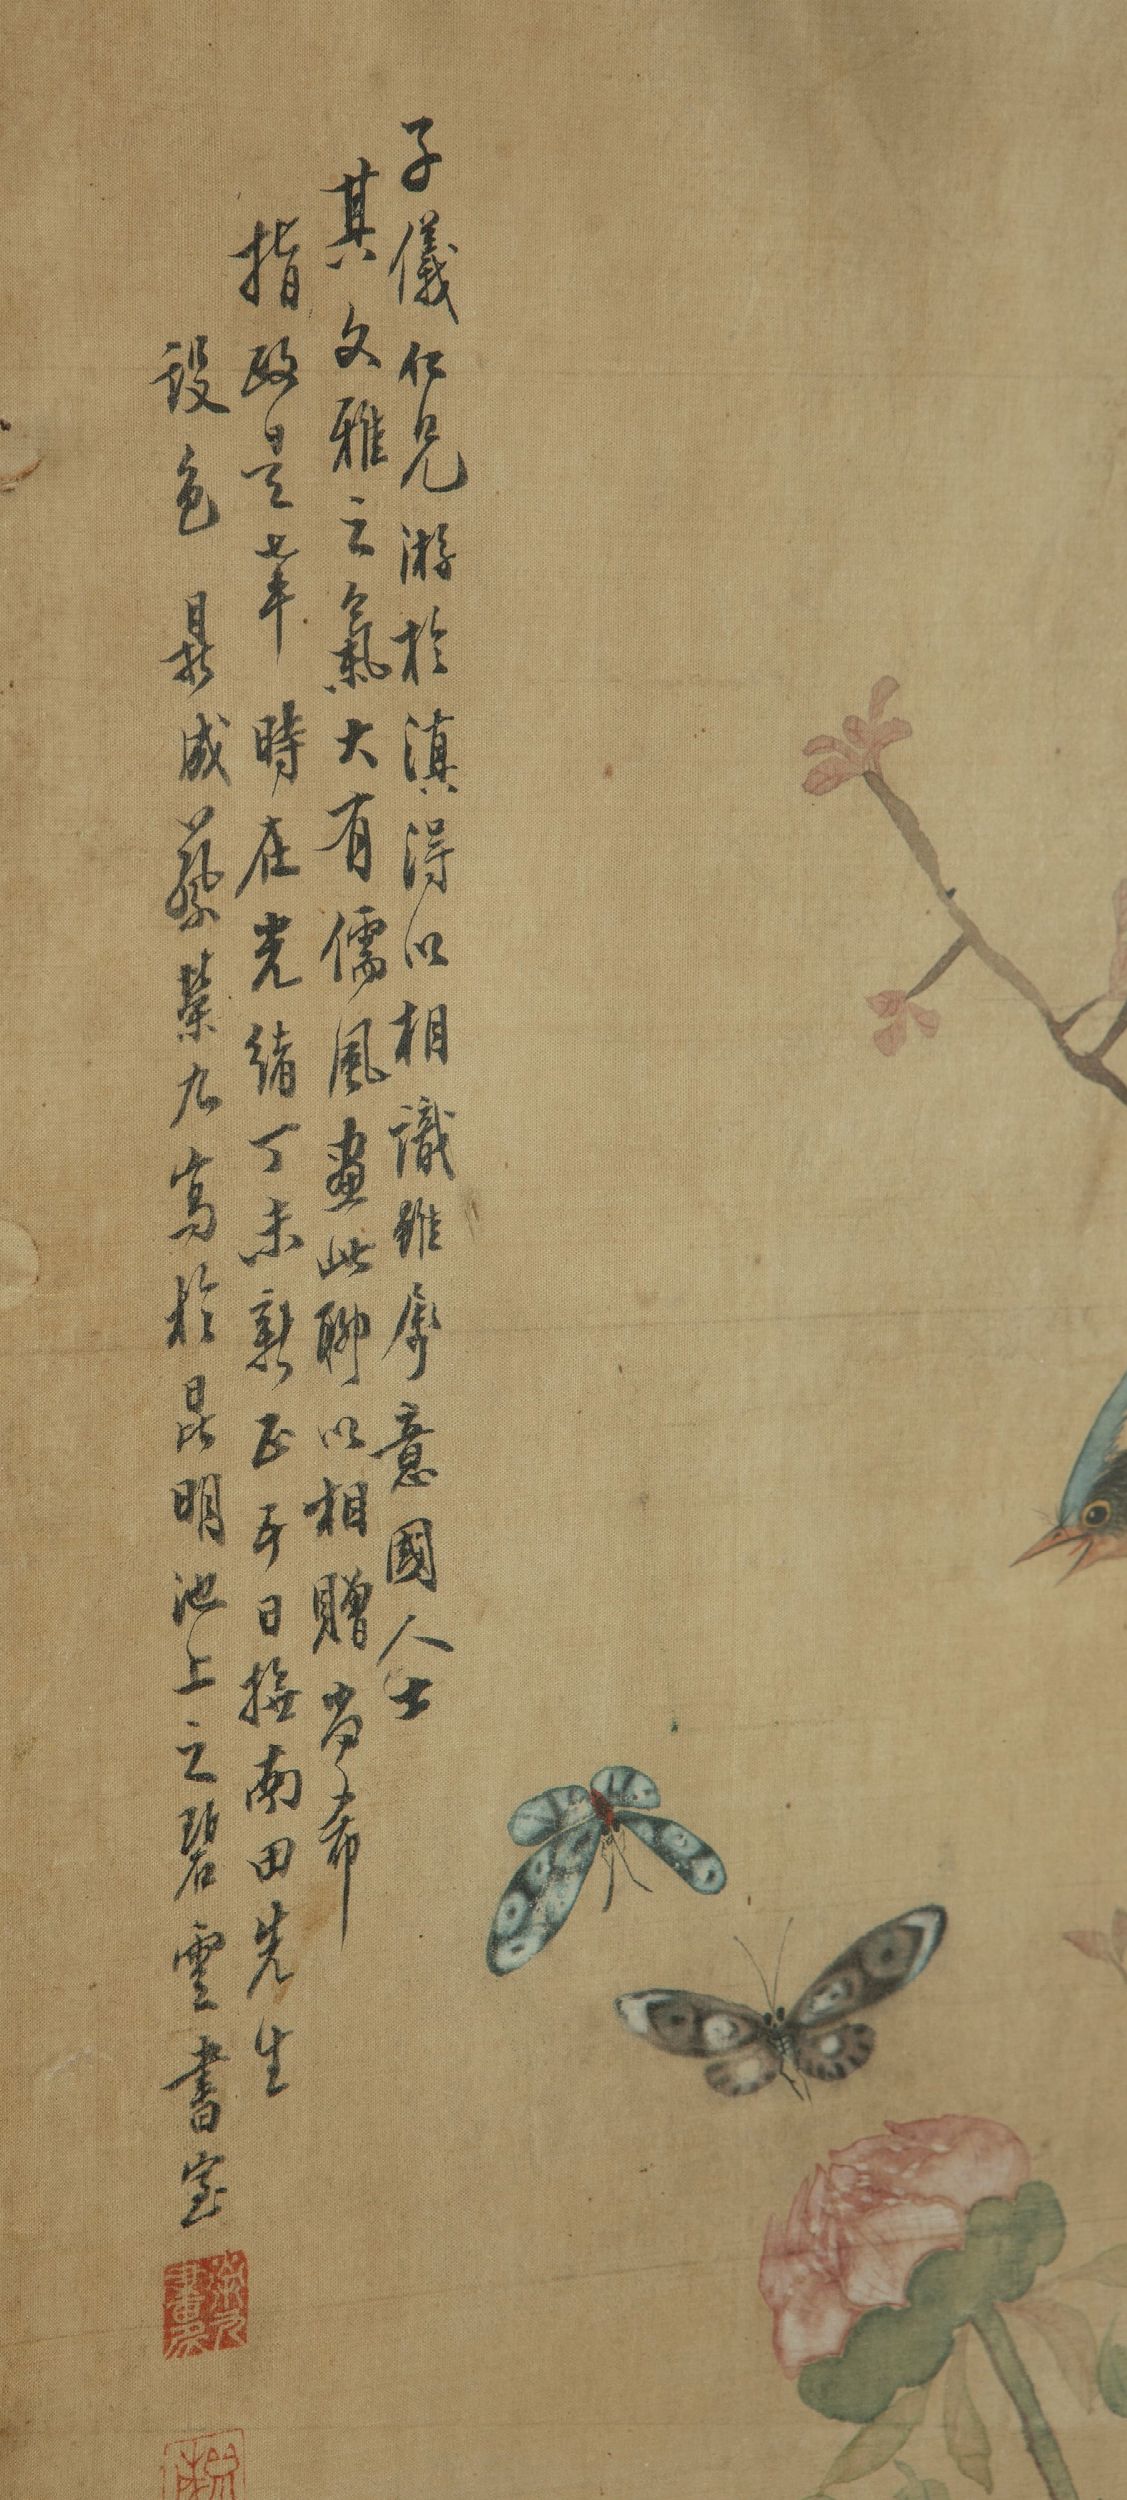 子儀仁兄游於滇得以相識雖屬意國人士
其文雅之氣大有儒風畫此聊以相贈尚希
指政是幸時在光緒丁未新正平日橅南田先生
設色 晨成蔡榮九寫於昆明池上之碧雲書室